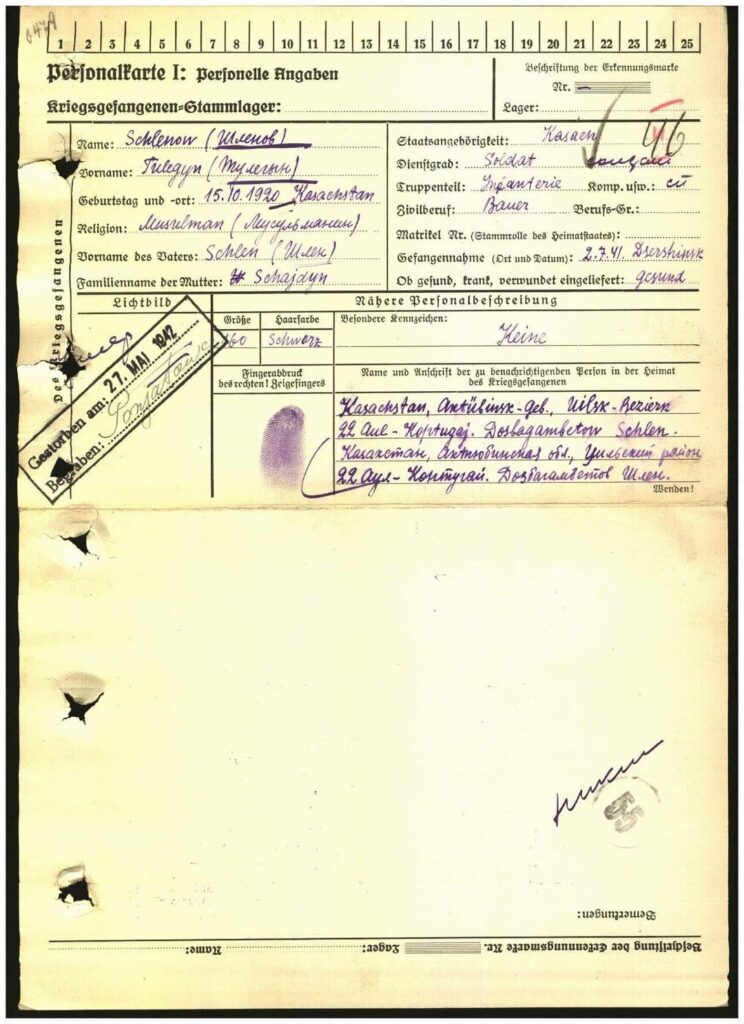 1 2 3 4 5 6 7 8 9 10 11 12 13 14 15 16 17 18 19 20 21 22 23 24 25
Personalkarte I: Personelle Angaben
Kriegsgefangenen-Stammlager:
Beschriftung der Erkennungsmarke
Nr. —
Lager:
Des Kriegsgefangenen
Name: Schlenow (Шленов)
Vorname: Tulegyn (Тулегын)
Geburtstag und -ort: 15.10.1920 Kasachstan
Religion: Muselman (Мусульманин)
Vorname des Vaters: Schlen (Шлен)
Familienname der Mutter: Schajdyn
Staatsangehörigkeit: Kasach
Dienstgrad: Soldat
Truppenteil: Infanterie Komp. usw.:
Zivilberuf: Bauer Berufs-Gr.:
Matrikel Nr. (Stammrolle des Heimatstaates):
Gefangennahme (Ort und Datum): 2.7.41. Dsershinsk
Ob gesund, krank, verwundet eingeliefert: gesund
46
Lichtbild
Gestorben am: 27. MAI 1942
Begraben:
Nähere Personalbeschreibung
Größe Haarfarbe Besondere Kennzeichen:
160 Schwarz Keine
Fingerabdruck
des rechten! Zeigefingers
Name und Anschrift der zu benachrichtigenden Person in der Heimat
des Kriegsgefangenen
Kasachstan, Aktübinsk-Geb., Uilsk-Bezierk
22 Aul-Kortugaj. Dosbagambetow Schlen.
Казахстан, Актюбинская обл., Уильский район
22 Аул-Кортугай. Дозбагамбетов Шлен.
Wenden!
55
Bemerkungen:
Beschriftung der Erkennungsmarke Nr. Lager: Name: